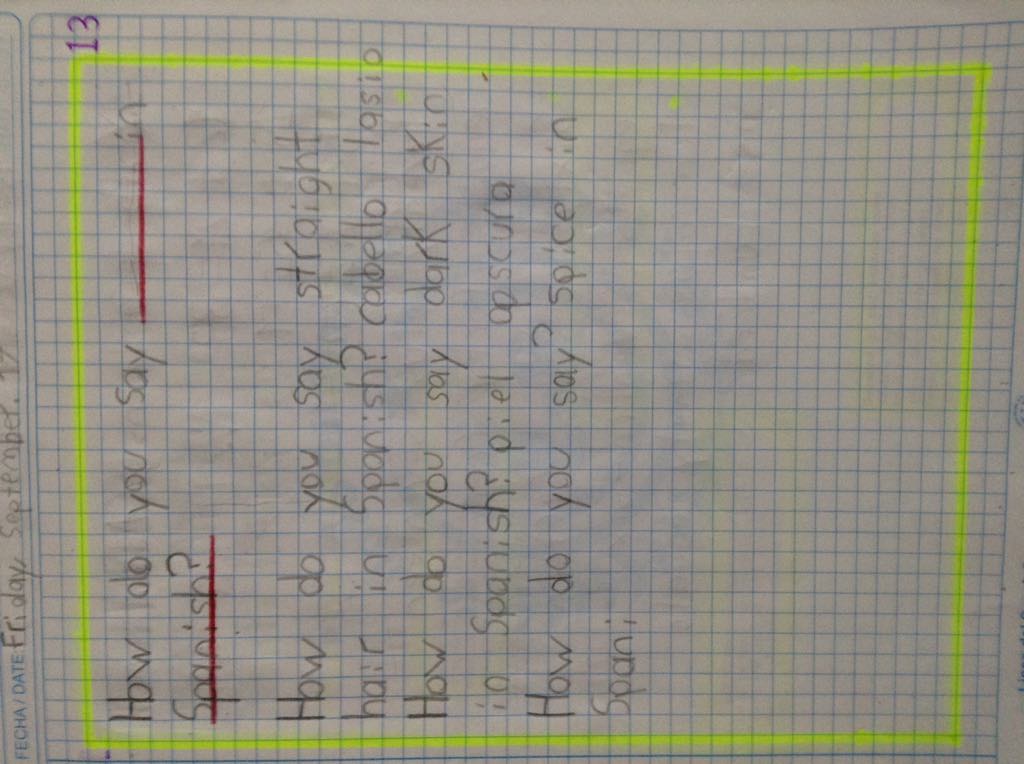 FECHA/DATE: Friday September.
13
How do you say ______ in
Spanish?
How do you say straight
hair in Spanish? cabello lasio
How do you say dark skin
in Spanish? piel opscura
How do you say? spice in
Spani